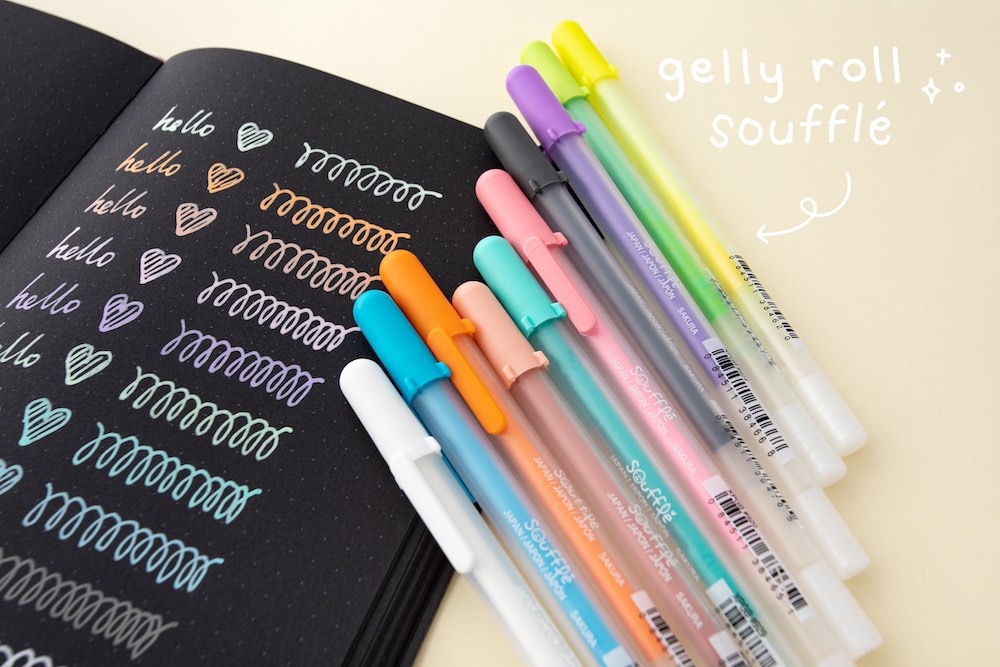 gelly roll
soufflé
hello
hello
hello
hello
hello
hello
Soufflé
JAPAN/JAPON/JAPÓN
SAKURA
Soufflé
JAPAN/JAPON/JAPÓN
SAKURA
Soufflé
JAPAN/JAPON/JAPÓN
SAKURA
Soufflé
SAKURA
Soufflé
SAKURA
JAPAN/JAPON/JAPÓN
SAKURA
0 84511 38468 8